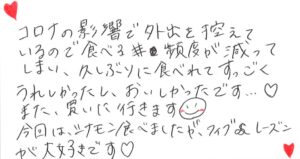 コロナの影響で外出を控えて
いるので食べる頻度が減って
しまい、久しぶりに食べれてすっごく
うれしかったし、おいしかったです…♡
また、買いに行きます
今回は、シナモン食べましたが、フィグ&レーズン
が大好きです♡